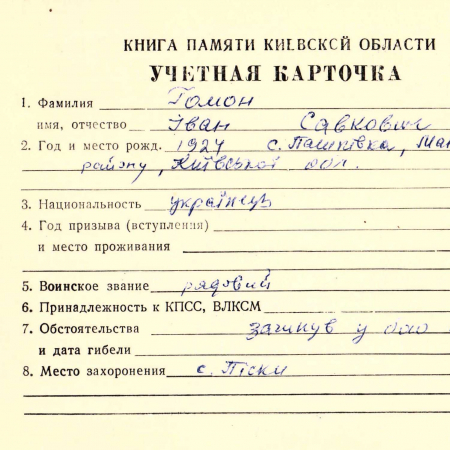 КНИГА ПАМЯТИ КИЕВСКСЙ ОБЛАСТИ
УЧЕТНАЯ КАРТОЧКА
1. Фамилия Гомон
имя, отчество Іван Савкович
2. Год и место рожд. 1924 с. Пашківка, Мак
району, Київської обл.
3. Национальность українець
4. Год призыва (вступления)
и место проживания
5. Воинское звание рядовий
6. Принадлежность к КПСС, ВЛКСМ
7. Обстоятельства загинув у бою
и дата гибели
8. Место захоронения с. Піски